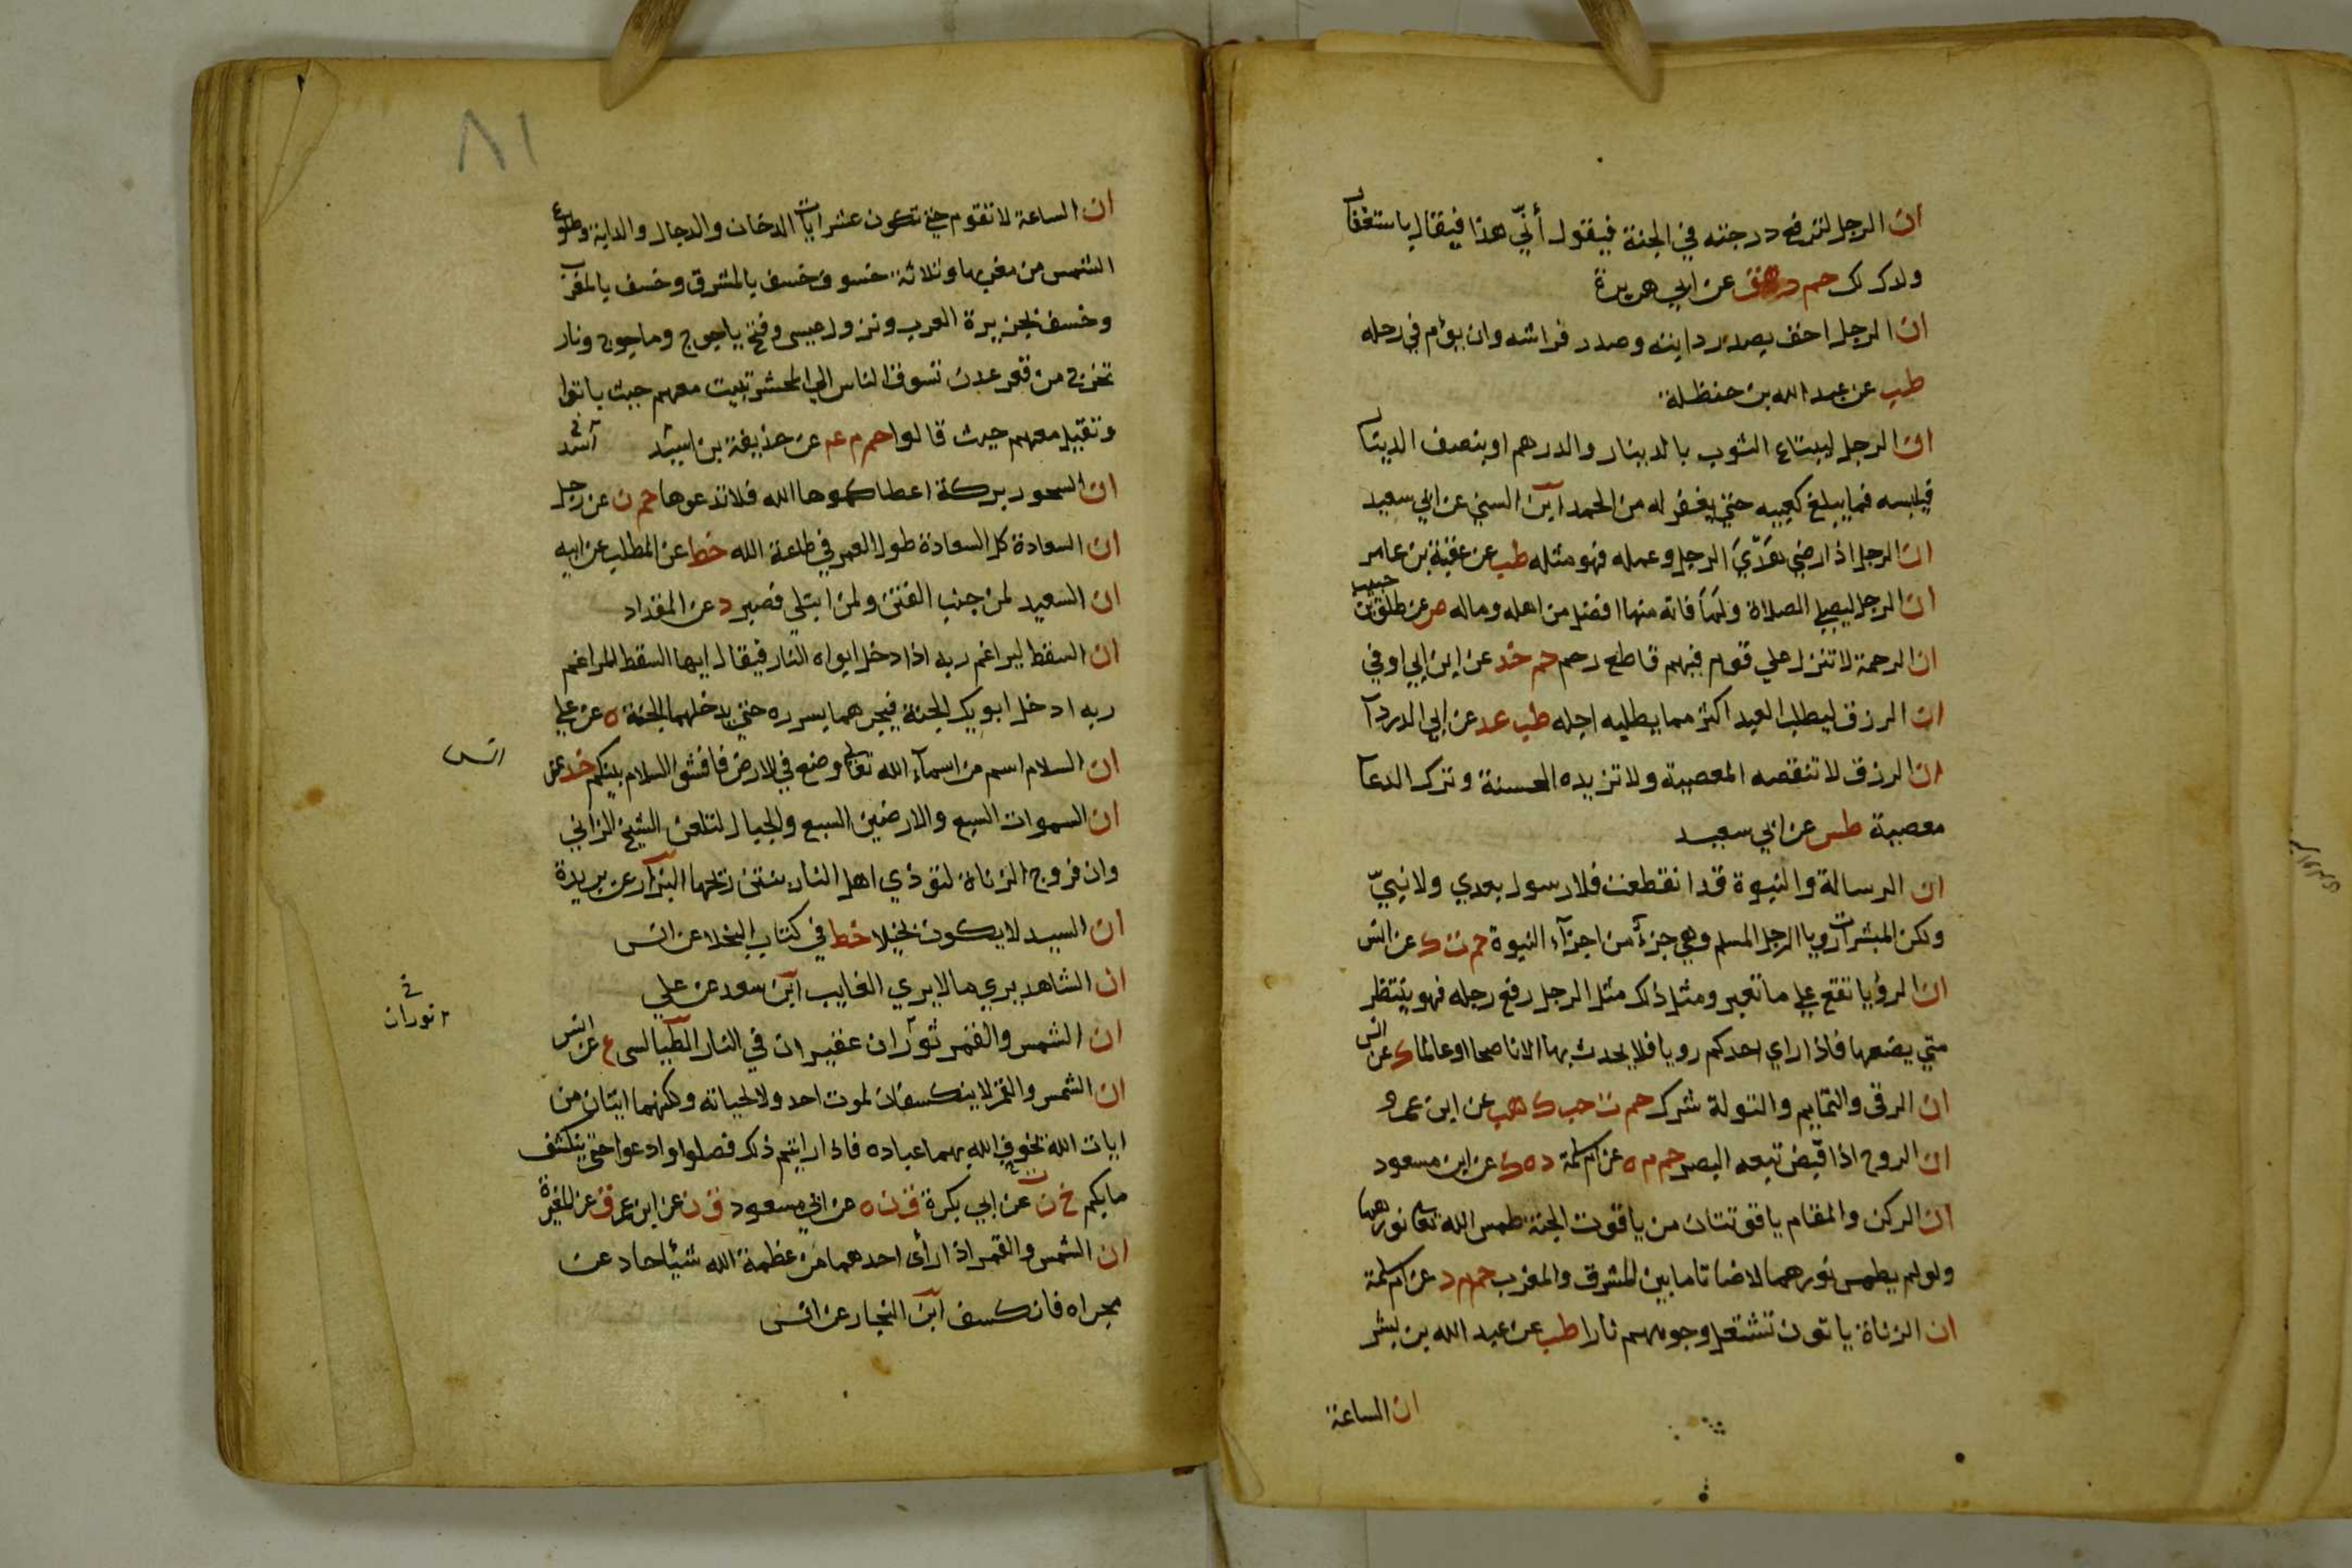 ان الرجل لترفع درجته في الجنة فيقول أنّي هذا فيقال باستغفار
ولدك لك حم ه هق عن ابي هريرة
ان الرجل احق بصدر دابته وصدر فراشه وان يؤم في رحله
طب عن عبد الله بن حنظلة
ان الرجل ليبتاع الثوب بالدينار والدرهم او بنصف الدينار
فيلبسه فما يبلغ كعبيه حتي يغفر له من الحمد ابن السني عن ابي سعيد
ان الرجل اذا رضي هدي الرجل وعمله فهو مثله طب عن عقبة بن عامر
ان الرجل ليصلي الصلاة ولما فاته منها افضل من اهله وماله ص عن طلق بن حبيب
ان الرحمة لا تنزل علي قوم فيهم قاطع رحم حم خد عن ابن ابي اوفي
ان الرزق ليطلب العبد اكثر مما يطلبه اجله طب عد عن ابي الدردآ
ان الرزق لا تنقصه المعصية ولا تزيده الحسنة وترك الدعآ
معصية طس عن ابي سعيد
ان الرسالة والنبوة قد انقطعت فلا رسول بعدي ولا نبيّ
ولكن المبشرات رويا الرجل المسلم وهي جزء من اجزآء النبوة حم ت ك عن انس
ان الرؤيا تقع علي ما تعبر ومثل ذلك مثل الرجل رفع رجله فهو ينتظر
متي يضعها فاذا راي احدكم رويا فلا يحدث بها الا ناصحا او عالما ك عن انس
ان الرقي والتمايم والتولة شرك حم ت حب ك هب عن ابن عمرو
ان الروح اذا قبض تبعه البصر حم م ه عن ام سلمة د ه ك عن ابن مسعود
ان الركن والمقام ياقوتتان من ياقوت الجنة طمس الله تعالى نورهما
ولو لم يطمس نورهما لاضاتا ما بين المشرق والمغرب حم م د عن ام سلمة
ان الزناة ياتون تشتعل وجوههم نارا طب عن عبد الله بن بشر
ان الساعة
٨١
ان الساعة لا تقوم حتي تكون عشر ايات الدخان والدجال والدابة وطلوع
الشمس من مغربها وثلاثة خسوف خسف بالمشرق وخسف بالمغرب
وخسف بجزيرة العرب ونزول عيسي وفتح ياجوج وماجوج ونار
تخرج من قعر عدن تسوق الناس الي المحشر تبيت معهم حيث باتوا
وتقيل معهم حيث قالوا حم م عه عن حذيفة بن اسيد
ان السحور بركة اعطاكموها الله فلا تدعوها حم ن عن رجل
ان السعادة كل السعادة طول العمر في طاعة الله خط عن المطلب عن ابيه
ان السعيد لمن جنب الفتن ولمن ابتلي فصبر د عن المقداد
ان السقط ليراغم ربه اذا دخل ابواه النار فيقال ايها السقط المراغم
ربه ادخل ابويك الجنة فيجرهما بسرره حتي يدخلهما الجنة ه عن علي
ان السلام اسم من اسمآء الله تعالى وضع في الارض فافشوا السلام بينكم خد عن
انس
ان السموات السبع والارضين السبع والجبال لتلعن الشيخ الزاني
وان فروج الزناة لتوذي اهل النار بنتن ريحها البزار عن بريدة
ان السيد لا يكون بخيلا خط في كتاب البخلا عن انس
ان الشاهد يري ما لا يري الغايب ابن سعد عن علي
ان الشمس والقمر ثوران عقيران في النار الطيالسي ع عن انس
نوران
ان الشمس والقمر لا ينكسفان لموت احد ولا لحياته ولكنهما ايتان من
ايات الله يخوف الله بهما عباده فاذا رايتم ذلك فصلوا وادعوا حتي ينكشف
ما بكم خ ن عن ابي بكرة ق ن ه عن ابي مسعود ق ن عن ابن عمر ق عن المغيرة
ان الشمس والقمر اذا رأى احدهما من عظمة الله شيئا حاد عن
مجراه فانكسف ابن النجار عن انس